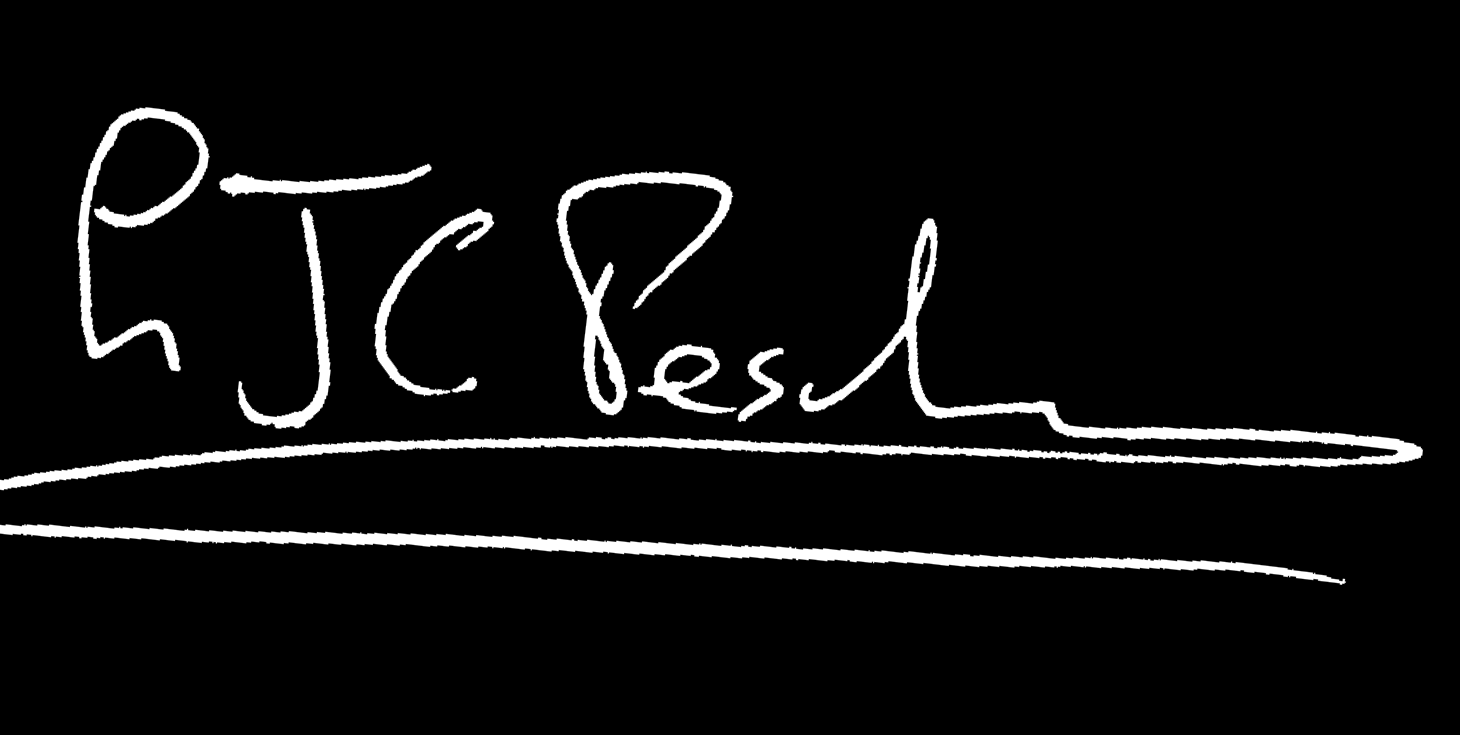 PJC Pesch